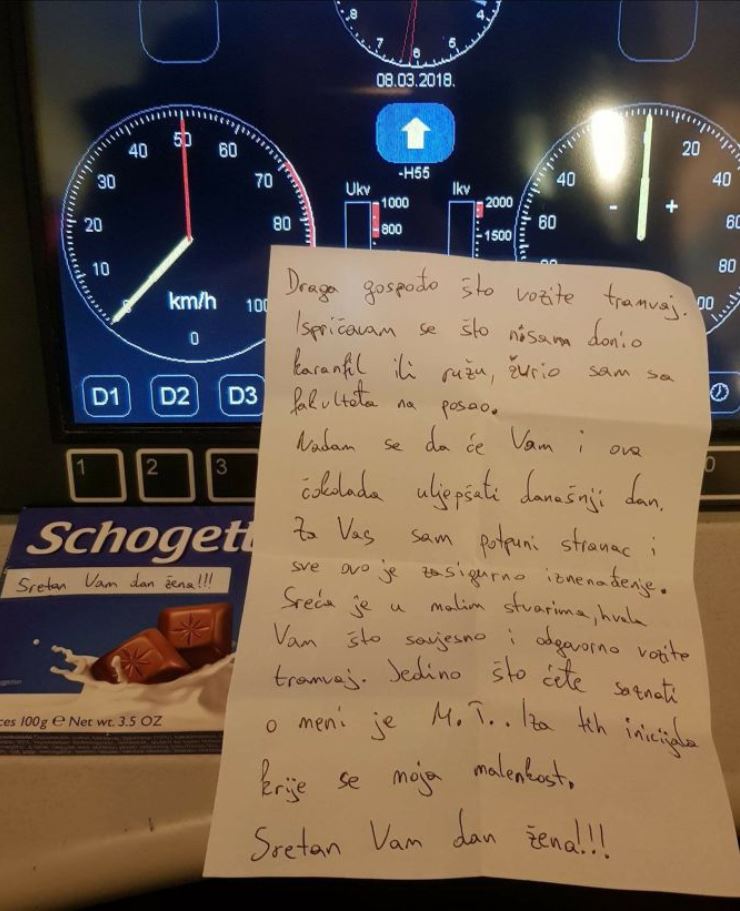 8
7
6
5
4
08.03.2018.
-H55
10
20
30
40
50
60
70
80
100
km/h
0
Ukv
1000
800
Ikv
2000
1500
60
40
20
40
60
80
- +
D1 D2 D3
1 2 3
0
Schogett
Sretan Vam dan žena!!!
ces 100g e Net wt. 3.5 OZ
Draga gospođo što vozite tramvaj.
Ispričavam se što nisam donio
karanfil ili ružu, žurio sam sa
fakulteta na posao.
Nadam se da će Vam i ova
čokolada uljepšati današnji dan.
Za Vas sam potpuni stranac i
sve ovo je zasigurno iznenađenje.
Sreća je u malim stvarima, hvala
Vam što savjesno i odgovorno vozite
tramvaj. Jedino što ćete saznati
o meni je M. T.. Iza tih inicijala
krije se moja malenkost.
Sretan Vam dan žena!!!